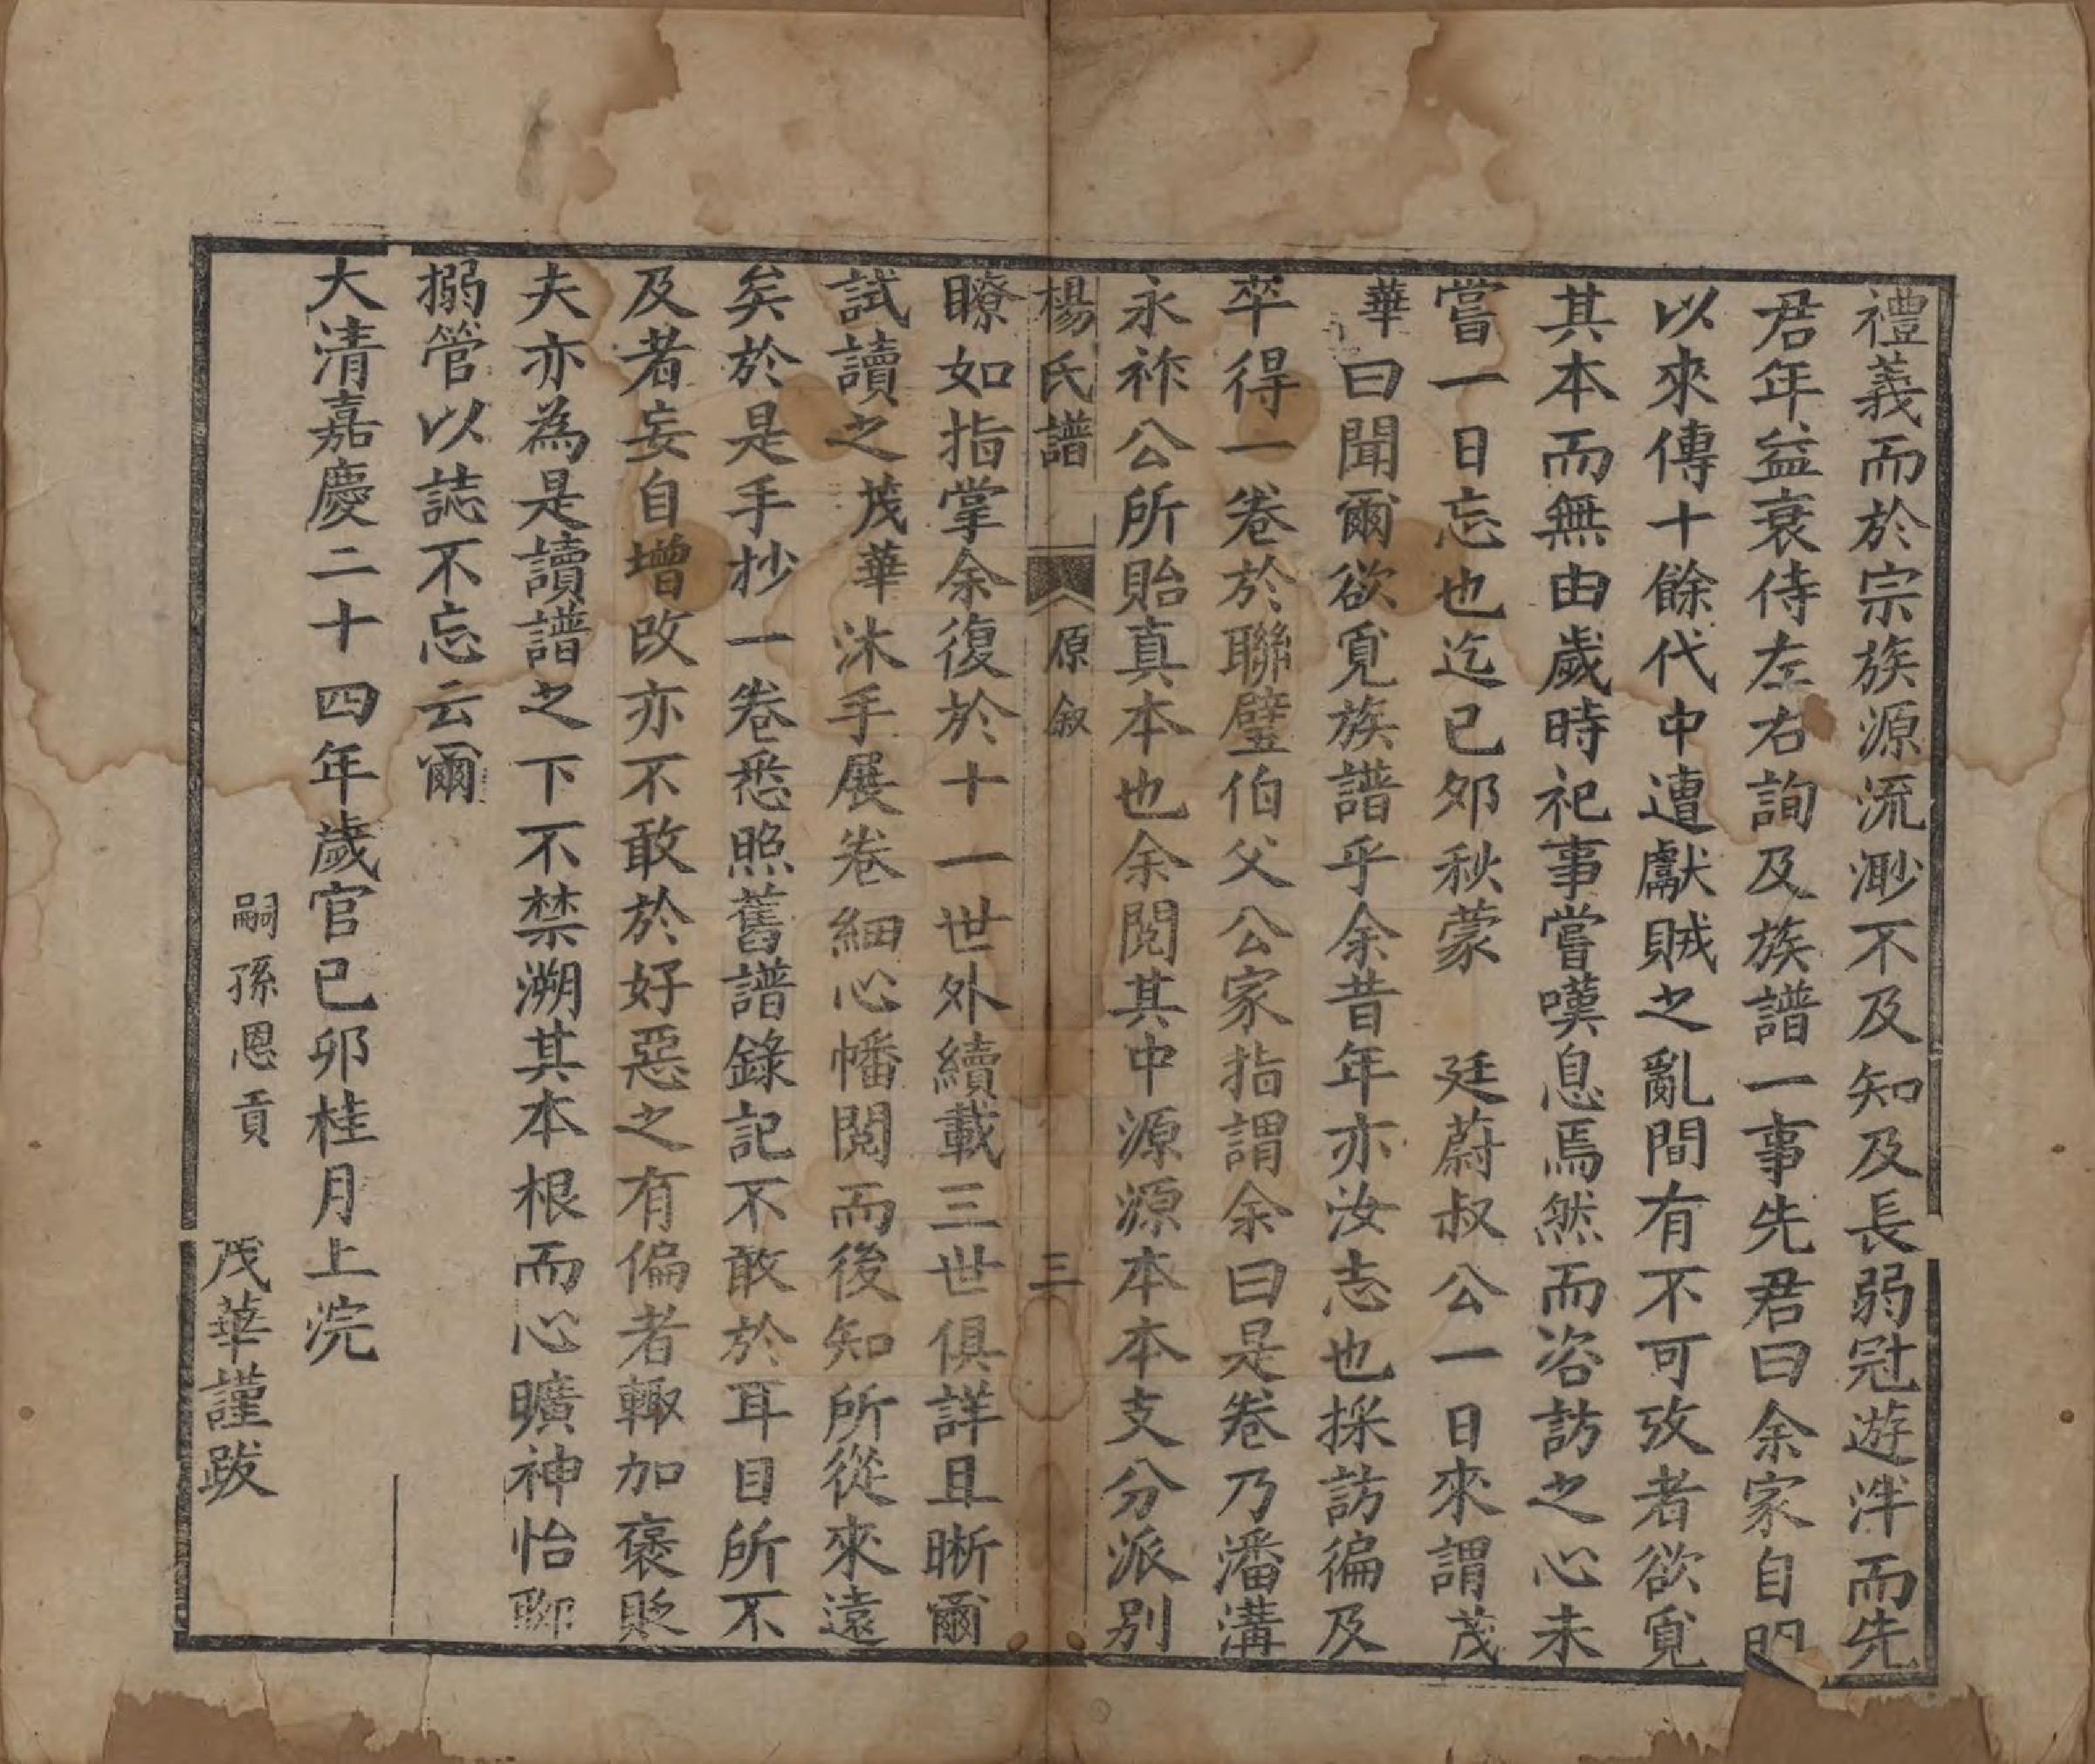 禮義而於宗族源流渺不及知及長弱冠遊泮而先
君年益衰侍左右詢及族譜一事先君曰余家自明
以來傳十餘代中遭獻賊之亂間有不可攷者欲覓
其本而無由歲時祀事嘗嘆息焉然而咨訪之心未
嘗一日忘也迄己夘秋蒙　廷蔚叔公一日來謂茂
華曰聞爾欲覓族譜乎余昔年亦汝志也採訪徧及
卒得一卷於聯璧伯父公家指謂余曰是卷乃潘溝
永祚公所貽真本也余閱其中源源本本支分派別
楊氏譜　原叙　三
瞭如指掌余復於十一世外續載三世俱詳且晰爾
試讀之茂華沐手展卷細心幡閱而後知所從來遠
矣於是手抄一卷悉照舊譜錄記不敢於耳目所不
及者妄自增改亦不敢於好惡之有偏者輙加褒貶
夫亦為是讀譜之下不禁溯其本根而心曠神怡聊
搦管以誌不忘云爾
大清嘉慶二十四年歲官己卯桂月上浣
嗣孫恩貢　茂華謹跋